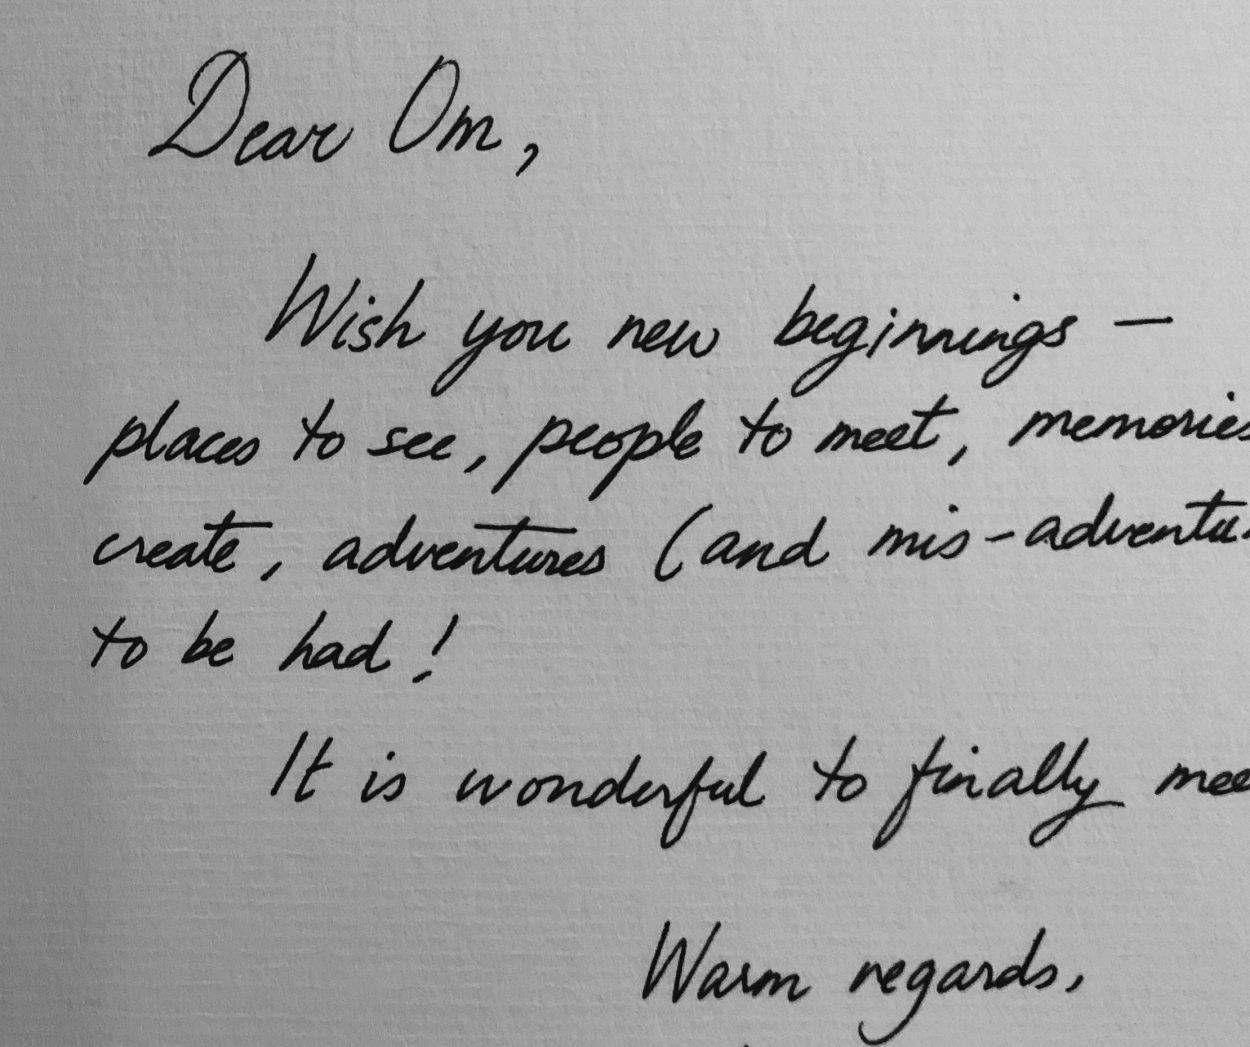 Dear Om,
Wish you new beginnings —
places to see, people to meet, memories
create, adventures (and mis-adventu
to be had!
It is wonderful to finally mee
Warm regards,